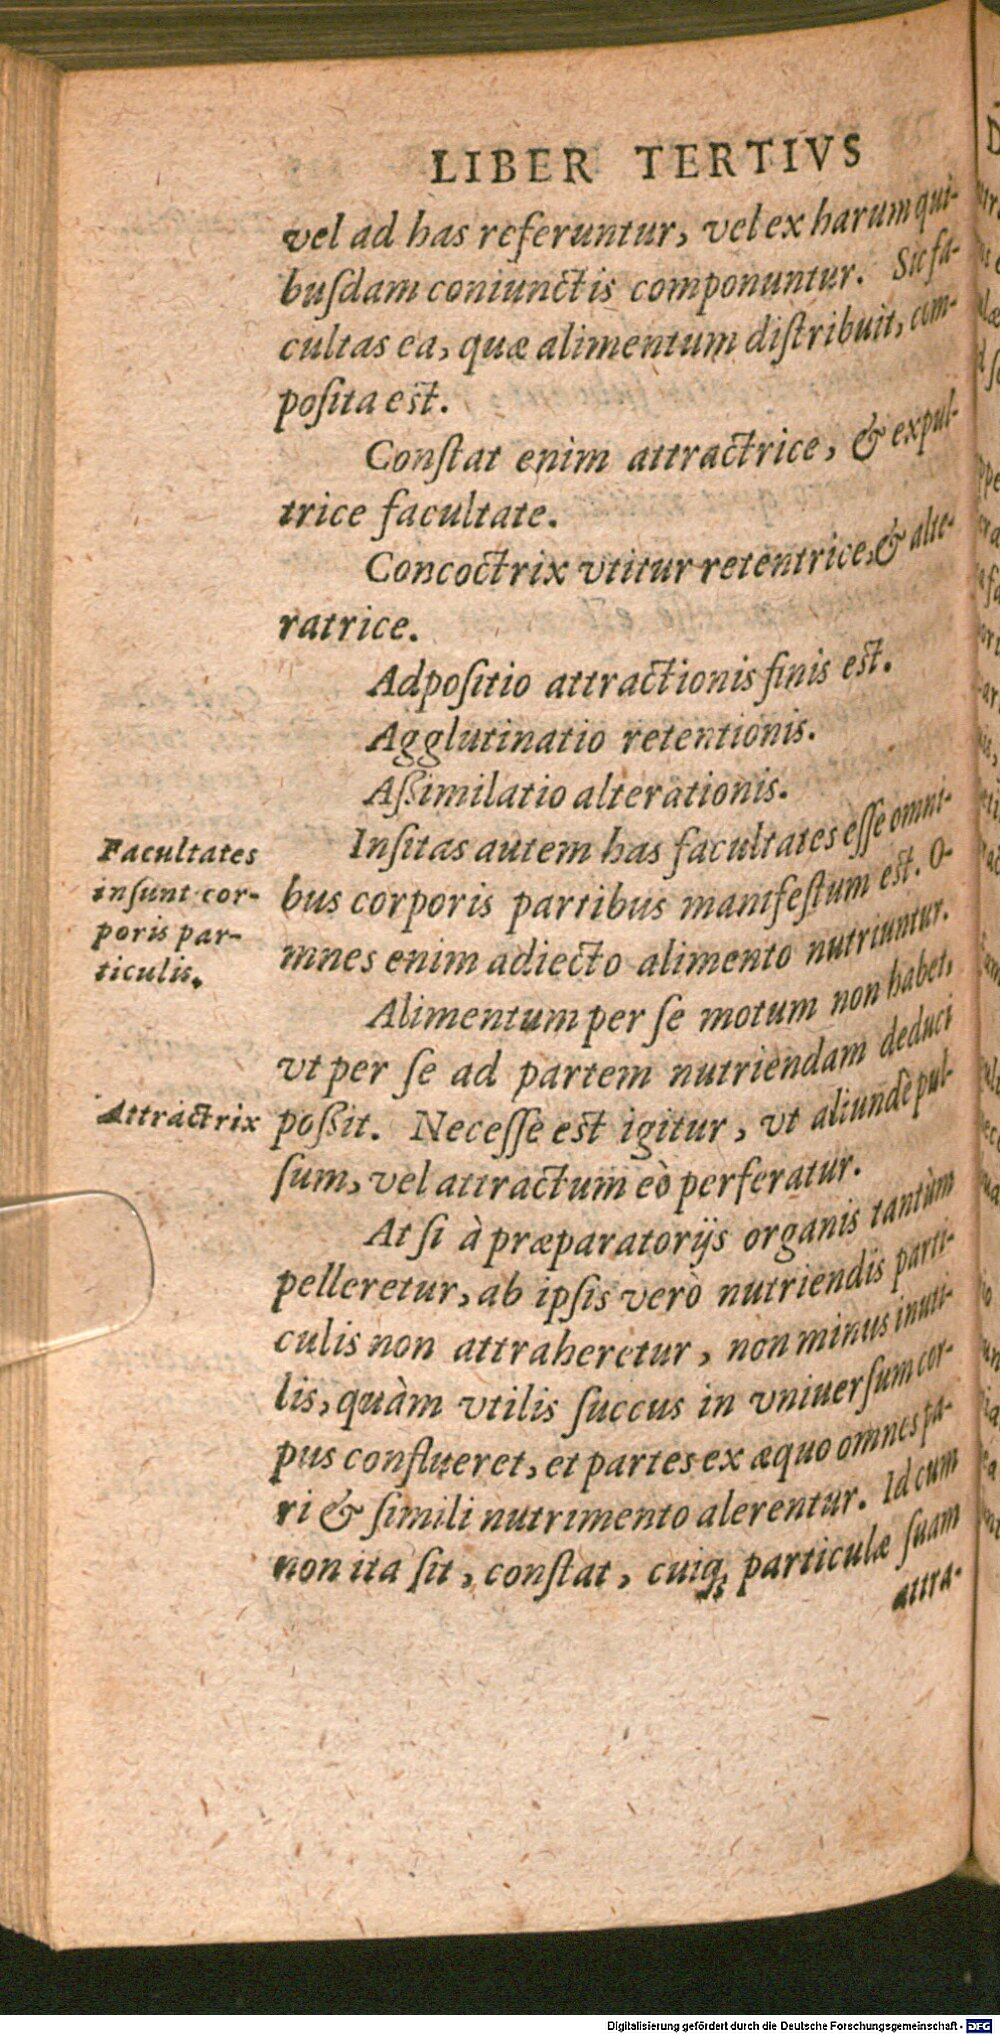 LIBER TERTIVS
vel ad has referuntur, vel ex harum qui-
buſdam coniunctis componuntur. Sic fa-
cultas ea, quæ alimentum diſtribuit, com-
poſita est.
Conſtat enim attractrice, & expul-
trice facultate.
Concoctrix vtitur retentrice, & alte-
ratrice.
Adpoſitio attractionis finis est.
Agglutinatio retentionis.
Aſsimilatio alterationis.
Inſitas autem has facultates eſſe omni-
bus corporis partibus manifeſtum est. O-
mnes enim adiecto alimento nutriuntur.
Facultates
inſunt cor-
poris par-
ticulis.
Alimentum per ſe motum non habet,
vt per ſe ad partem nutriendam deduci
poſsit. Neceſſe est igitur, vt aliundè pul-
Attractrix
ſum, vel attractum eò perferatur.
At ſi à præparatorijs organis tantùm
pelleretur, ab ipſis verò nutriendis parti-
culis non attraheretur, non minus inuti-
lis, quàm vtilis ſuccus in vniuerſum cor-
pus conflueret, et partes ex æquo omnes pa-
ri & ſimili nutrimento alerentur. Id cum
non ita ſit, conſtat, cuiq; particulæ ſuam
attra-
Digitalisierung gefördert durch die Deutsche Forschungsgemeinschaft - DFG